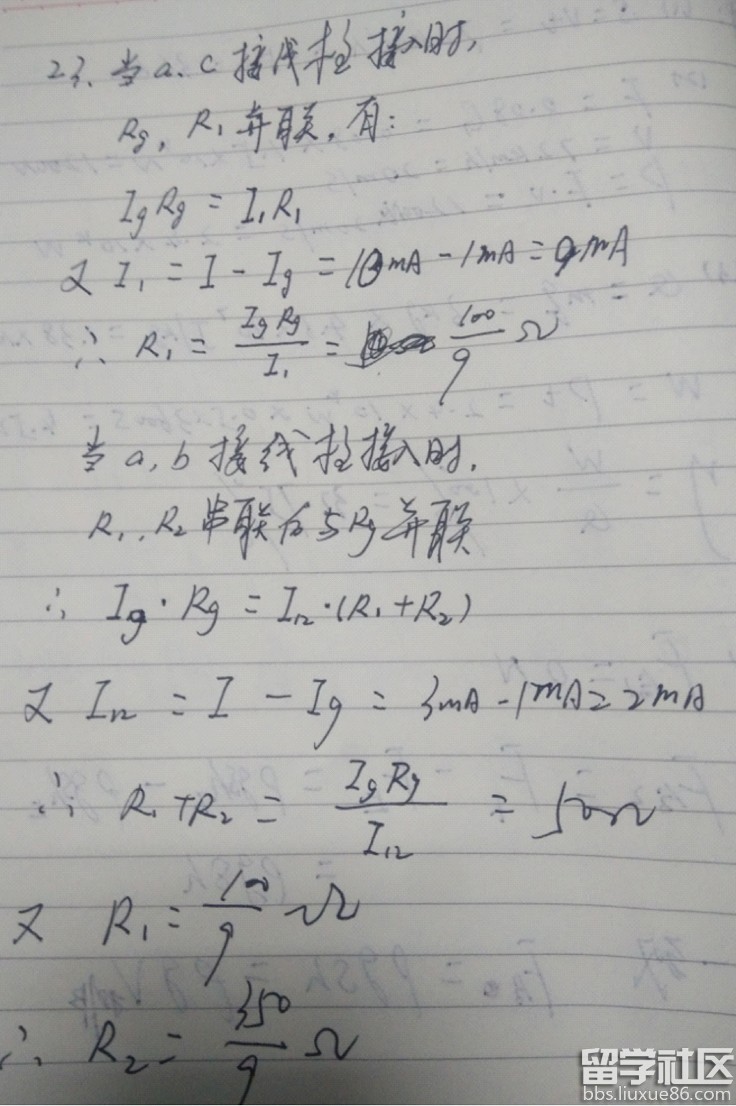 23. 当 a、c 接线柱接入时,
Rg, R₁ 并联, 有:
IgRg = I₁R₁
又 I₁ = I - Ig = 10mA - 1mA = 9mA
∴ R₁ = IgRg/I₁ = 100/9 Ω
当 a, b 接线柱接入时,
R₁, R₂ 串联后与Rg并联
∴ Ig·Rg = I₁₂·(R₁+R₂)
又 I₁₂ = I - Ig = 3mA - 1mA = 2mA
∴ R₁+R₂ = IgRg/I₁₂ = 50Ω
又 R₁ = 100/9 Ω
∴ R₂ = 350/9 Ω
留学社区
bbs.liuxue86.com